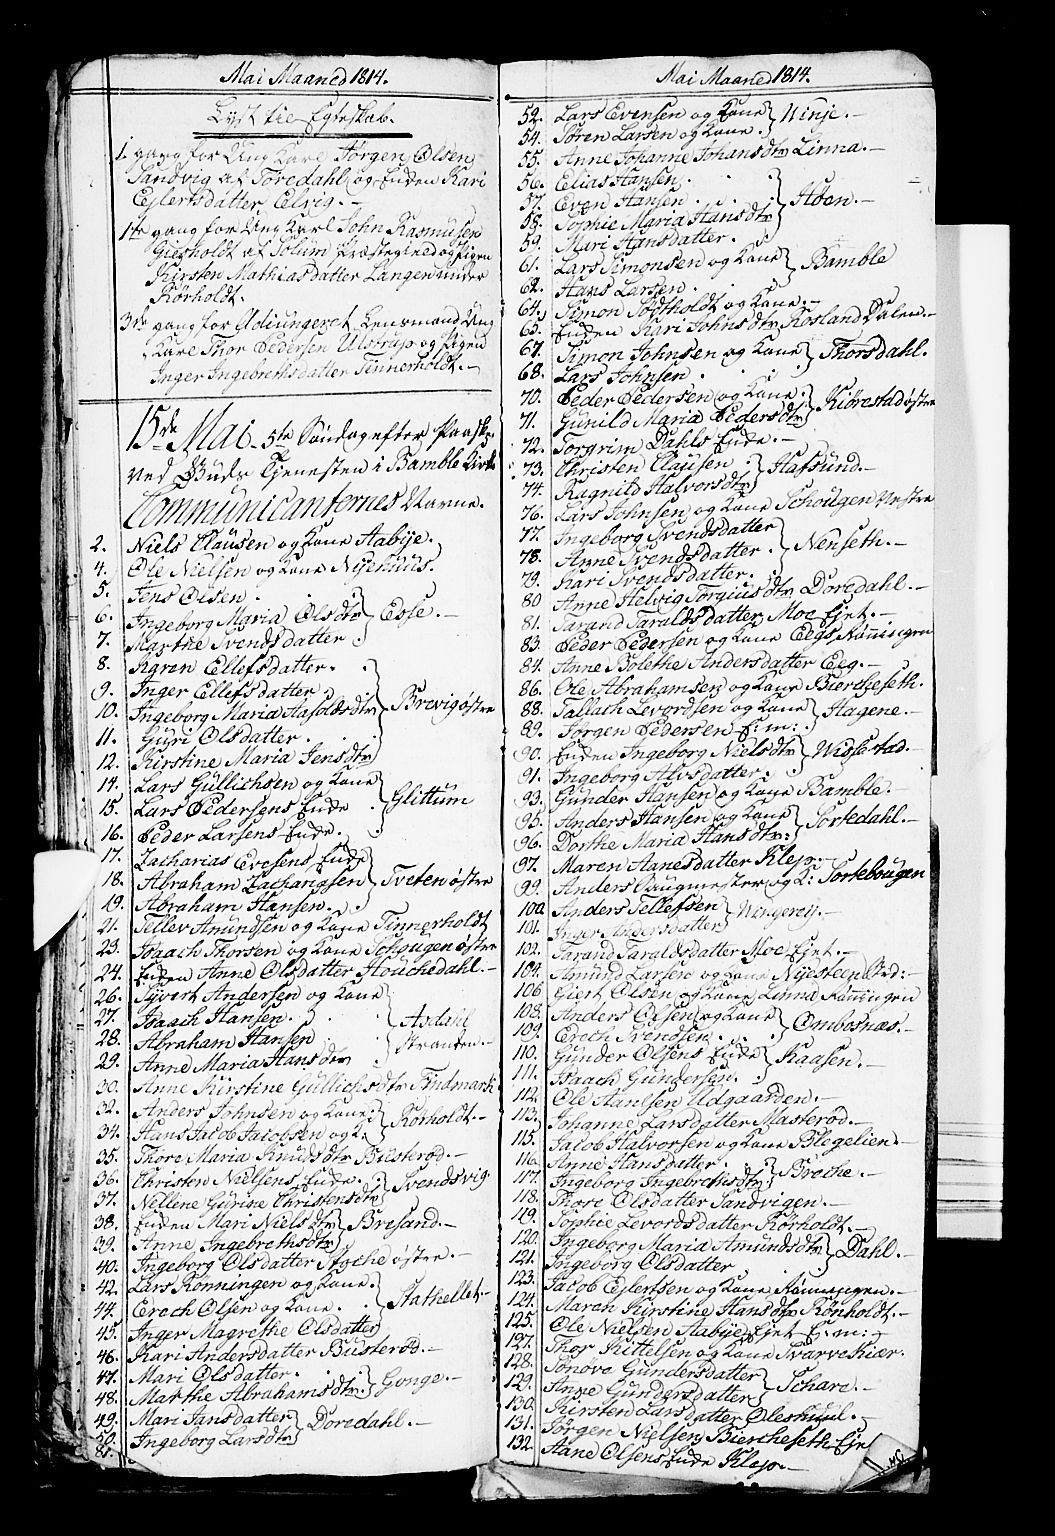 Mai Maaned 1814.
Lyst til Egteskab.
1. gang for Ung Karl Jørgen Olsen
Sandvig af Tøredahl og Enken Kari
Ejlertsdatter Eelvig.-
1te gang for Ung Karl John Rasmusen
Giesholdt af Solum Præstegield og Pigen
Kirsten Mathiasdatter Langen under
Rörholdt.
3de gang for Adjungeret Lensmand Ung
Karl Thor Pedersen Ulstrup og Pigen
Inger Ingebrethsdatter Tinnerholdt.-
15de Mai 5te Søndag efter Paaske
ved Guds Tjenesten i Bamble Kirke
Communicanternes Navne.
2. Niels Clausen og Kone Aabije.
4. Ole Nielsen og Kone Nijehuus.
5. Jens Olsen.
6. Ingeborg Maria Olsdtr Esse.-
7. Marthe Svendsdatter
8. Karen Ellefsdatter.
9. Inger Ellefsdatter.
10. Ingeborg Maria Aasoldsdtr Brevig østre
11. Guri Olsdatter.
12. Kirstine Maria Jensdtr
14. Lars Gullichsen og Kone
15. Lars Pedersens Enke Glittum
16. Peder Larsens Enke.
17. Zacharias Evesens Enke
18. Abraham Zachariasen Tveten østre
19. Abraham Hansen.
21. Tellev Amundsen og Kone Tinnerholdt
23. Isaach Thorsen og Kone Schougen østre
24. Enken Anne Olsdatter Houchedahl.-
26. Sivert Andersen og Kone
27. Isaach Hansen. Asdahl
28. Abraham Hansen Stranden.-
29. Anne Maria Hansdtr
30. Anne Kirstine Gullichsdtr Findmark
32. Anders Johnsen og Kone
34. Hans Jacob Jacobsen og K. Rörholdt.-
35. Thore Maria Knudsdtr Busterød.-
36. Christen Nielsens Enke. Svendsvig.
37. Nellene Gurine Christensdtr
38. Enken Mari Nielsdtr Bresand.-
39. Anne Ingebrethsdtr
40. Ingeborg Olsdatter Stoche østre.-
42. Lars Rönningen og Kone.
44. Erech Olsen og Kone. Stathellet.-
45. Inger Magrethe Olsdatter
46. Kari Andersdatter Busterød.-
47. Mari Olsdatter.
48. Marthe Abrahamsdtr. Gonge.-
49. Mari Jansdatter Doredahl.-
50. Ingeborg Larsdtr
Mai Maaned 1814.
52. Lars Evensen og Kone Winje.-
54. Søren Larsen og Kone.
55. Anne Johanne Johansdtr Linna.-
56. Elias Hansen.
57. Even Hansen. Aaen.-
58. Sophie Maria Hansdtr
59. Mari Hansdatter.
61. Lars Simonsen og Kone Bamble
62. Hans Larsen.
64. Simon Södtholdt og Kone.-
65. Enken Kari Johnsdtr Rosland Dalen.-
67. Simon Johnsen og Kone Thorsdahl.
68. Lars Johnsen.
70. Peder Pedersen og Kone. Kiørestad østre
71. Gunild Maria Pedersdtr
72. Torgrim Dahls Enke.-
73. Christen Clausen Hafsund.-
74. Ragnild Halvorsdtr
76. Lars Johnsen og Kone Schougen Vestre
77. Ingeborg Svendsdatter
78. Anne Svendsdatter. Nenseth.-
79. Kari Svendsdatter.
80 Anne Helvig Torgiusdtr Doredahl.-
81. Tarand Taraldsdatter Moe Ejet.-
83. Peder Pedersen og Kone Eegs Rönningen
84. Anne Bolethe Andersdatter Eeg.-
86. Ole Abrahamsen og Kone Biercheseth.
88. Tallach Levordsen og Kone Hagene.-
89. Jørgen Pedersen E: m:
90. Enken Ingeborg Nielsdtr Wissestad.-
91. Ingeborg Alvsdatter.
93. Gunder Hansen og Kone Bamble.-
95. Anders Hansen og Kone Sortedahl.-
96. Dorthe Maria Hansdtr:
97. Maren Hanesdatter Klep.-
99. Anders Saugmester og K: Sortebougen
100. Anders Tellefsen Wingereij.-
101. Inger Andersdatter
102. Tarand Taraldsdatter Moe Ejet.-
104. Amund Larsen og Kone Nijesteen
106 Giert Olsen og Kone Linna Rönningen
108. Anders Olsen og Kone Ombosnæs.-
109. Erech Svendsen.
110. Gunder Olsens Enke Kaasen.-
111. Isaach Gundersen.
112. Ole Hanssen Udgaarden.-
113. Johanne Larsdatter Masterød.-
115. Jacob Halvorsen og Kone Blegelien.-
116. Anne Hansdatter. Breche.-
117. Ingeborg Ingebrethsdtr
118. Thore Olsdatter Sandvigen.-
119. Sophie Levordsdatter Rörholdt.-
120. Ingeborg Maria Amundsdtr Dahl.-
121. Ingeborg Olsdatter
123. Jacob Ejlertsen og Kone Rönningen.-
124. Maren Kirstine Hansdtr Rönholdt.-
125. Ole Nielsen Aabije Ejet E: m:-
127. Thor Kittelsen og Kone Svarvekiær.
128. Tonøve Gundersdatter
129. Anne Gundersdatter Schare.-
130. Kirsten Larsdatter Oleskuul.-
131. Jörgen Nielsen Biercheseth Eje
132. Hane Olsens Enke Klep.-